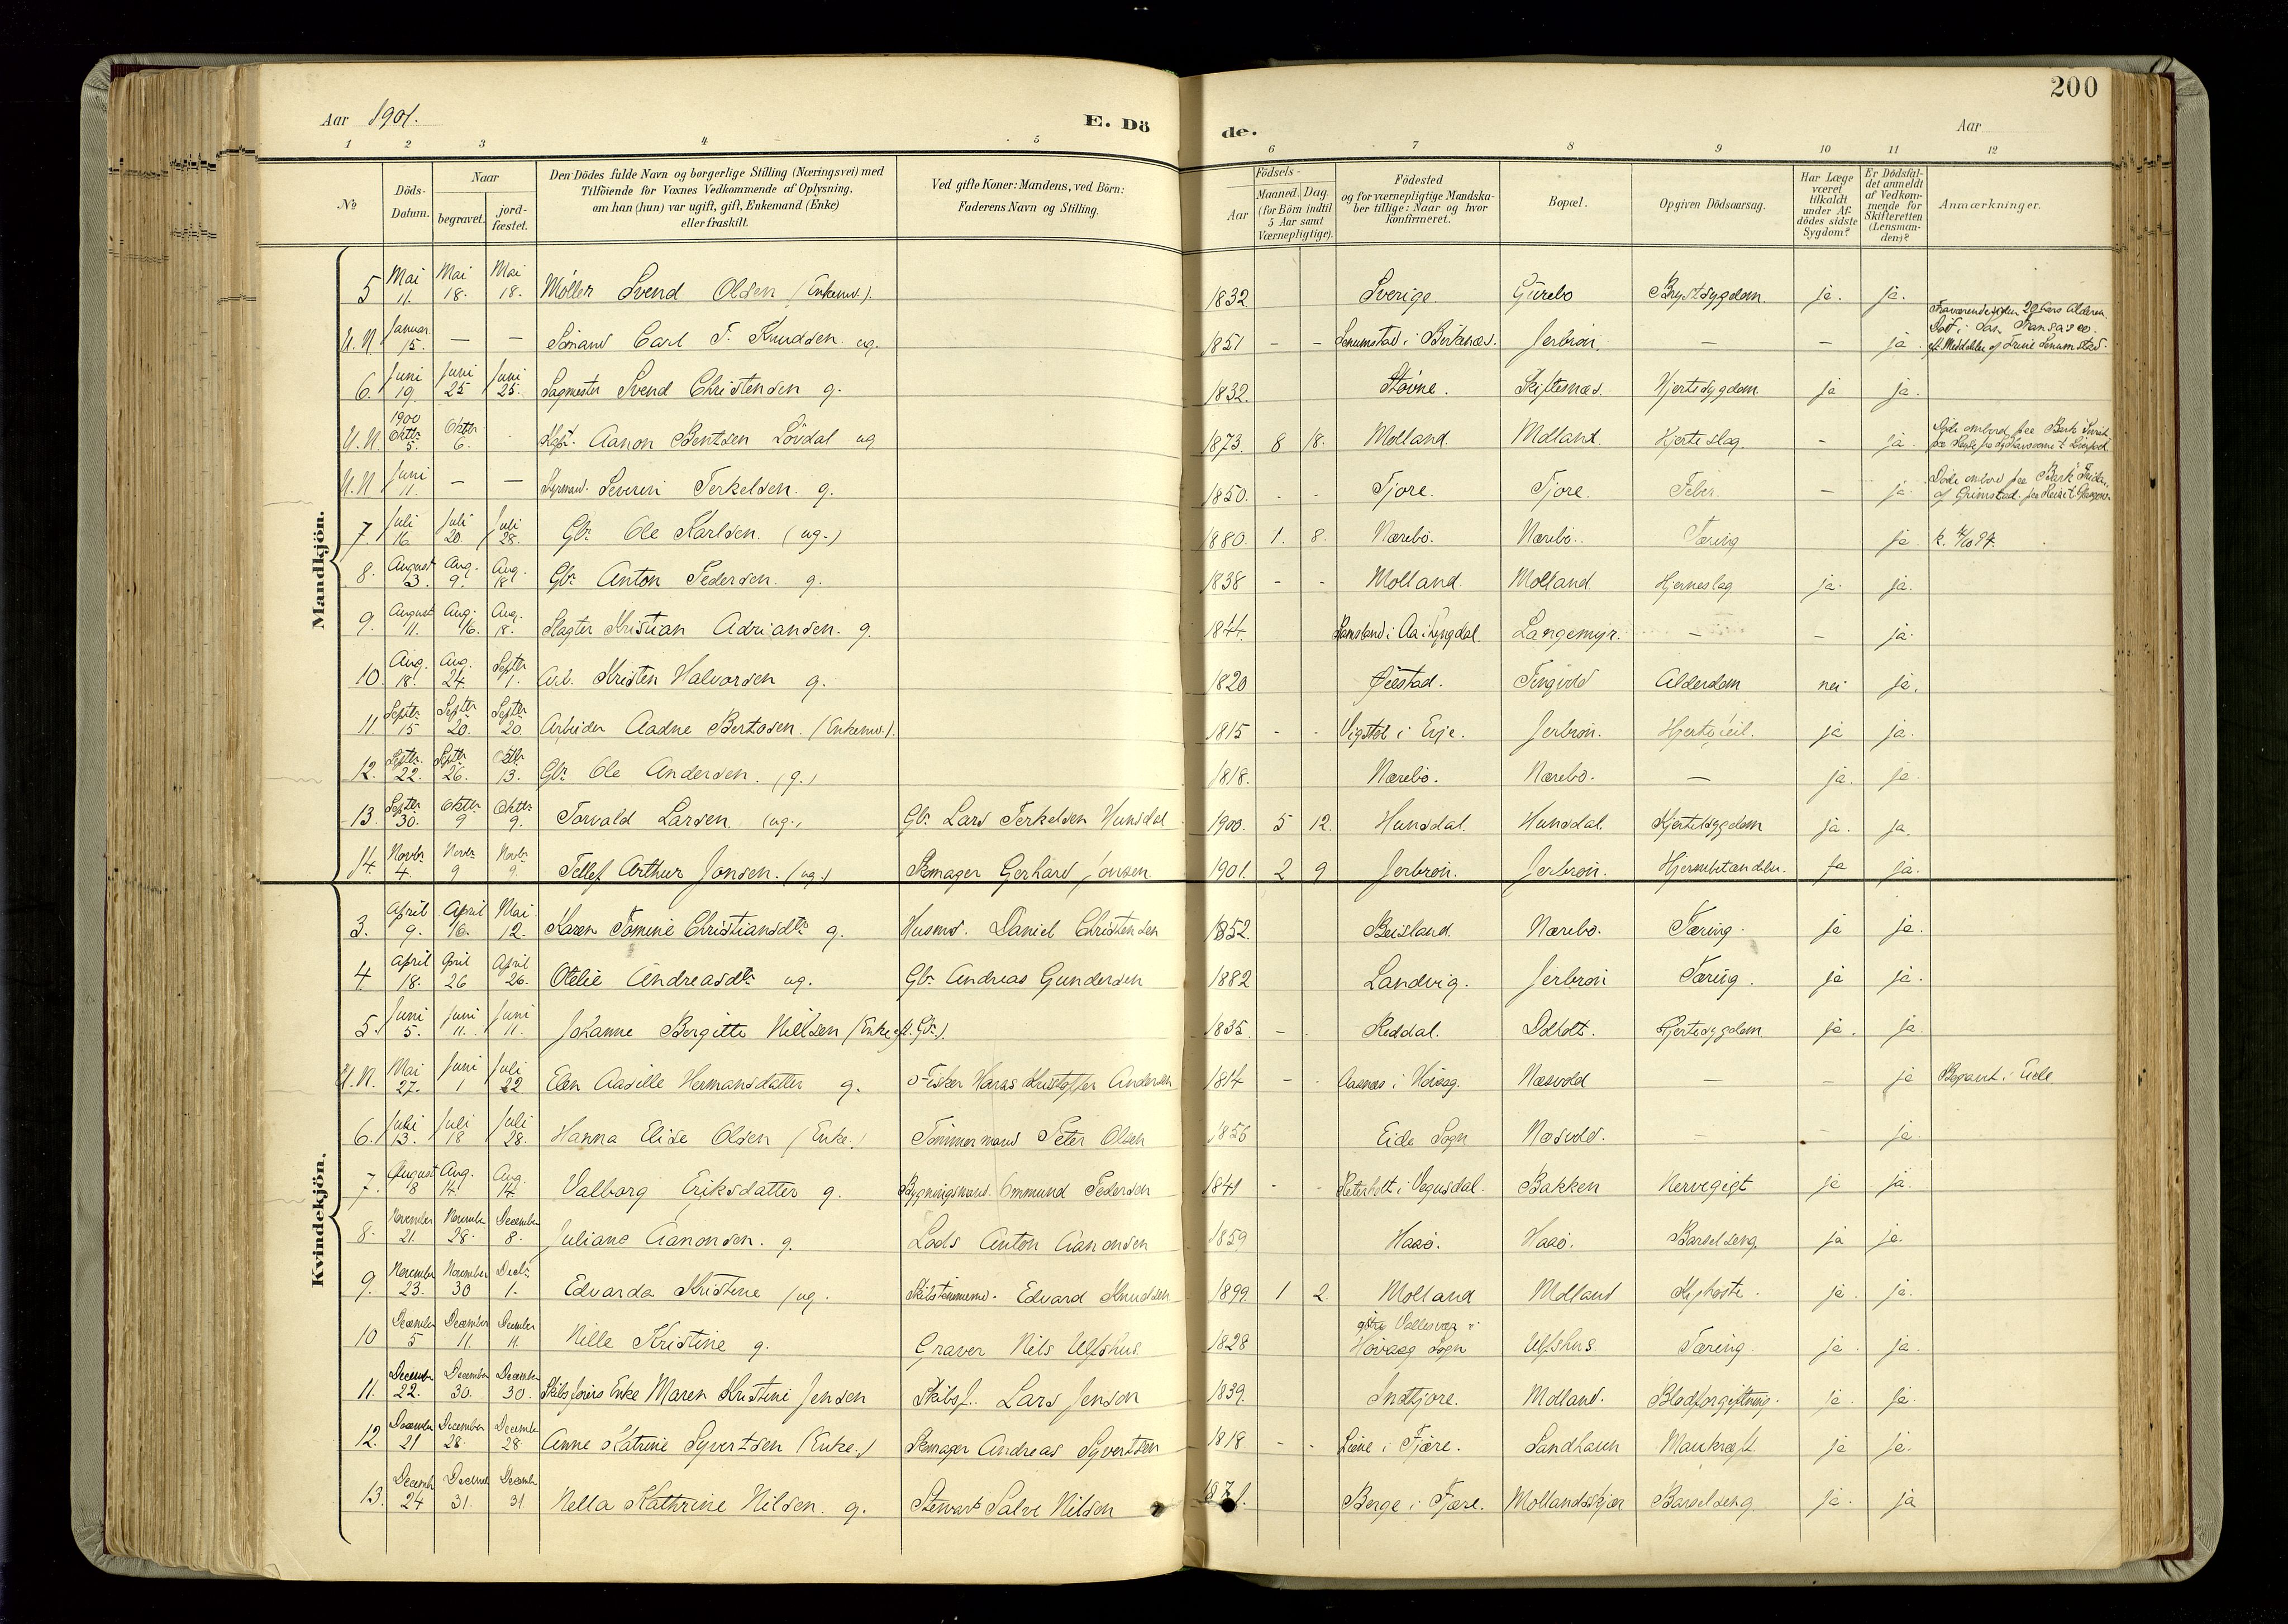 200
Aar 1901.
E. Dö
de.
Aar
1 2 3 4 5 6 7 8 9 10 11 12
No
Döds-Datum.
Naar
begravet.
jord-fæstet.
Den Dödes fulde Navn og borgerlige Stilling (Næringsvei) med
Tilföiende for Voxnes Vedkommende af Oplysning,
om han (hun) var ugift, gift, Enkemand (Enke)
eller fraskilt.
Ved gifte Koner: Mandens, ved Börn:
Faderens Navn og Stilling.
Födsels-
Aar
Maaned. Dag.
(for Börn indtil
5 Aar samt
Værnepligtige).
Födested
og for værnepligtige Mandska-
ber tillige: Naar og hvor
konfirmeret.
Bopæl.
Opgiven Dödsaarsag.
Har Læge
været
tilkaldt
under Af-
dödes sidste
Sygdom?
Er Dödsfal-
det anmeldt
af Vedkom-
mende for
Skifteretten
(Lensman-
den)?
Anmærkninger.
Mandkjön.
5 Mai 11. Mai 18. Mai 18. Møller Svend Olsen (Enkem.). 1832 Sverige. Gurebo Brystsygdom. ja. ja.
U.N. Januar 15. — — Sømand Carl T. Knudsen ug. 1851 - - Senumstad i Birkenæs. Jerbron. — — ja
6. Juni 19. Juni 25 Juni 25. Sagmester Svend Christensen g. 1832. Støvne. Skiftenæs. Hjertesygdom. ja ja.
U.N. 1900 Oktbr. 5. Oktbr 6. Aanon Bentsen Løvdal ug 1873. 8 18. Molland. Molland. Hjerteslag - ja.
U.N Juni 11. — — Styrmand. Severin Terkelsen. g. 1850. - - Fjære. Fjære. Feber. — ja.
7. Juli 16 Juli 20. Juli 28. Gbr. Ole Karlsen. (ug.) 1880. 1. 8. Nærebø. Nærebø. Tæring ja.
8. August 3. Aug. 9. Aug. 18 Gbr. Anton Pedersen. g. 1838 - - Molland. Molland. Hjerneslag ja. ja.
9. August 11. Aug. 16. Aug. 18. Slagter Kristian Adriansen. g. 1844. Langemyr. — — ja.
10. Aug. 18. Aug. 24. Septbr 1. Arb. Kristen Halvorsen g. 1820 Øiestad. Tingvold Alderdom nei ja.
11. Septbr. 15 Septbr 20. Septbr 20. Arbeider Aadne Bertosen. (Enkem.). 1815 - - Vigstøl i Evje. Jerbron. Hjertefeil. ja ja.
12. Septbr. 22. Septbr 26. Oktbr. 13. Gbr. Ole Andersen. (g.) 1818. Nærebø. Nærebø. — ja. ja.
13. Septbr 30. Oktbr 9 Oktbr. 9. Torvald Larsen. (ug.) Gbr. Lars Terkelsen Hunsdal 1900. 5 12. Hunsdal. Hunsdal. Hjertesygdom ja. ja.
14. Novbr. 4. Novbr. 9 Novbr. 9. Tellef Arthur Jonsen. (ug.) Skomager Gerhard Jonsen. 1901. 2 9 Jerbron. Jerbron. Hjernebetændelse. ja ja.
Kvindekjön.
3. April 9. April 16. Mai 12. Karen Tomine Christiansdtr g. Husmd. Daniel Christensen 1852. Beisland. Nærebø. Tæring. ja ja.
4 April 18. April 26 April 26. Otelie Andreasdtr. ug. Gbr. Andreas Gundersen 1882 Landvig. Jerbron Tæring. ja ja.
5. Juni 5. Juni 11. Juni 11. Johanne Bergitte Nielsen (Enke eft. Gbr.). 1835. - - Reddal. Dolholt. Hjertesygdom ja. ja.
U.N. Mai 27. Juni 1 Juli 22 Elen Aasille Hermansdatter g. Fisker Kristoffer Andersen 1814 - - Aasnæs i Høvaag. Næsvold — — ja i Eide
6. Juli 13. Juli 18 Juli 28. Hanna Elise Olsen (Enke.) Tømmermand Peter Olsen 1856 Eide Sogn Næsvold. — — ja.
7. August 8 Aug. 14. Aug. 14. Valborg Eriksdatter g. Bygningsmand. Ommund Pedersen 1841 - - i Vegusdal. Bakken Nervegigt ja ja.
8. November 21. November 28. December 8. Juliane Aanonsen. g. Lods Anton Aanonsen 1859 Haaø. Haaø. Barselseng. ja ja.
9. November 23. November 30 Decbr. 1. Edvarda Kristine (ug. Skibstømmermd. Edvard Knudsen 1899. 1 2. Molland Molland Kighoste. ja. ja.
10 December 5 December 11. December 11. Nille Kristine g. Graver Nils Ulfshus. 1828 Vallesvær i Høvaag Sogn Ulfshus. Tæring. ja. ja.
11. December 22. December 30. December 30. Skibsførers Enke Maren Kristine Jensen Skibsf. Lars Jenson 1839. Indfjore. Molland. Blodforgiftning. ja. ja.
12. December 21 December 28. December 28. Anne Katrine Syvertsen (Enke.) Skomager Andreas Syvertsen 1818 - - i Fjære. Sandhaun ja ja.
13. December 24 December 31. December 31. Nella Kathrine Nilsen. g. Stewart Salve Nilson 1871. Berge i Fjære. Mollandskjær Barselseng. ja. ja